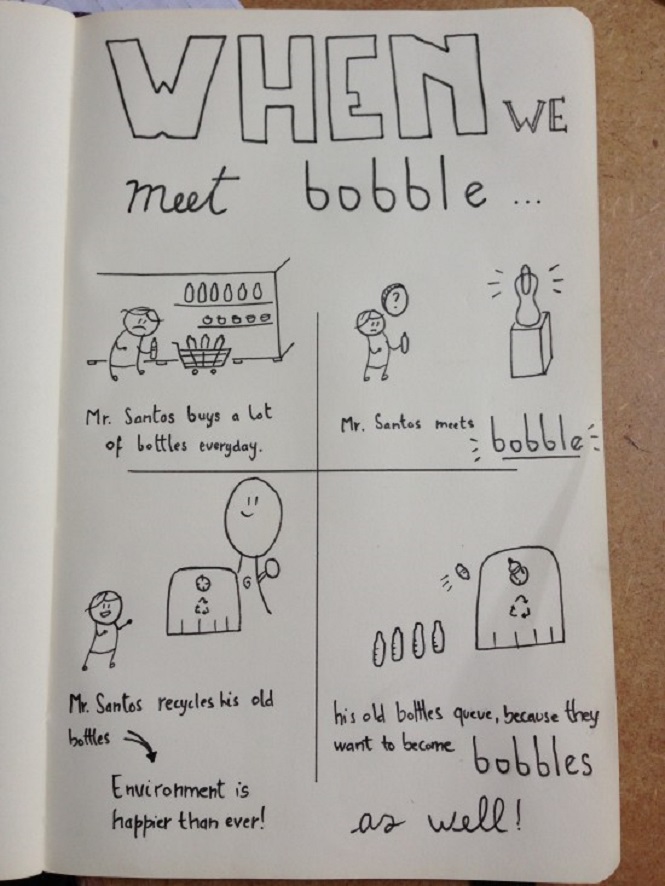 WHEN WE
meet bobble ...
?
Mr. Santos buys a lot
of bottles everyday.
Mr. Santos meets bobble
G
Mr. Santos recycles his old
bottles
Environment is
happier than ever!
his old bottles queue, because they
want to become bobbles
as well!